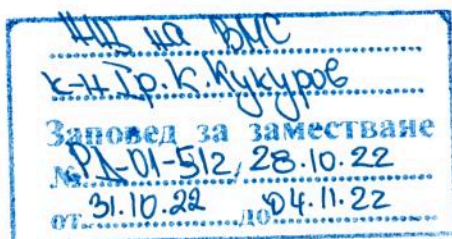 НЩ на ВМС
к-н I р. К. Кукуров
Заповед за заместване
№ РД-01-512, 28.10.22
от 31.10.22 до 04.11.22